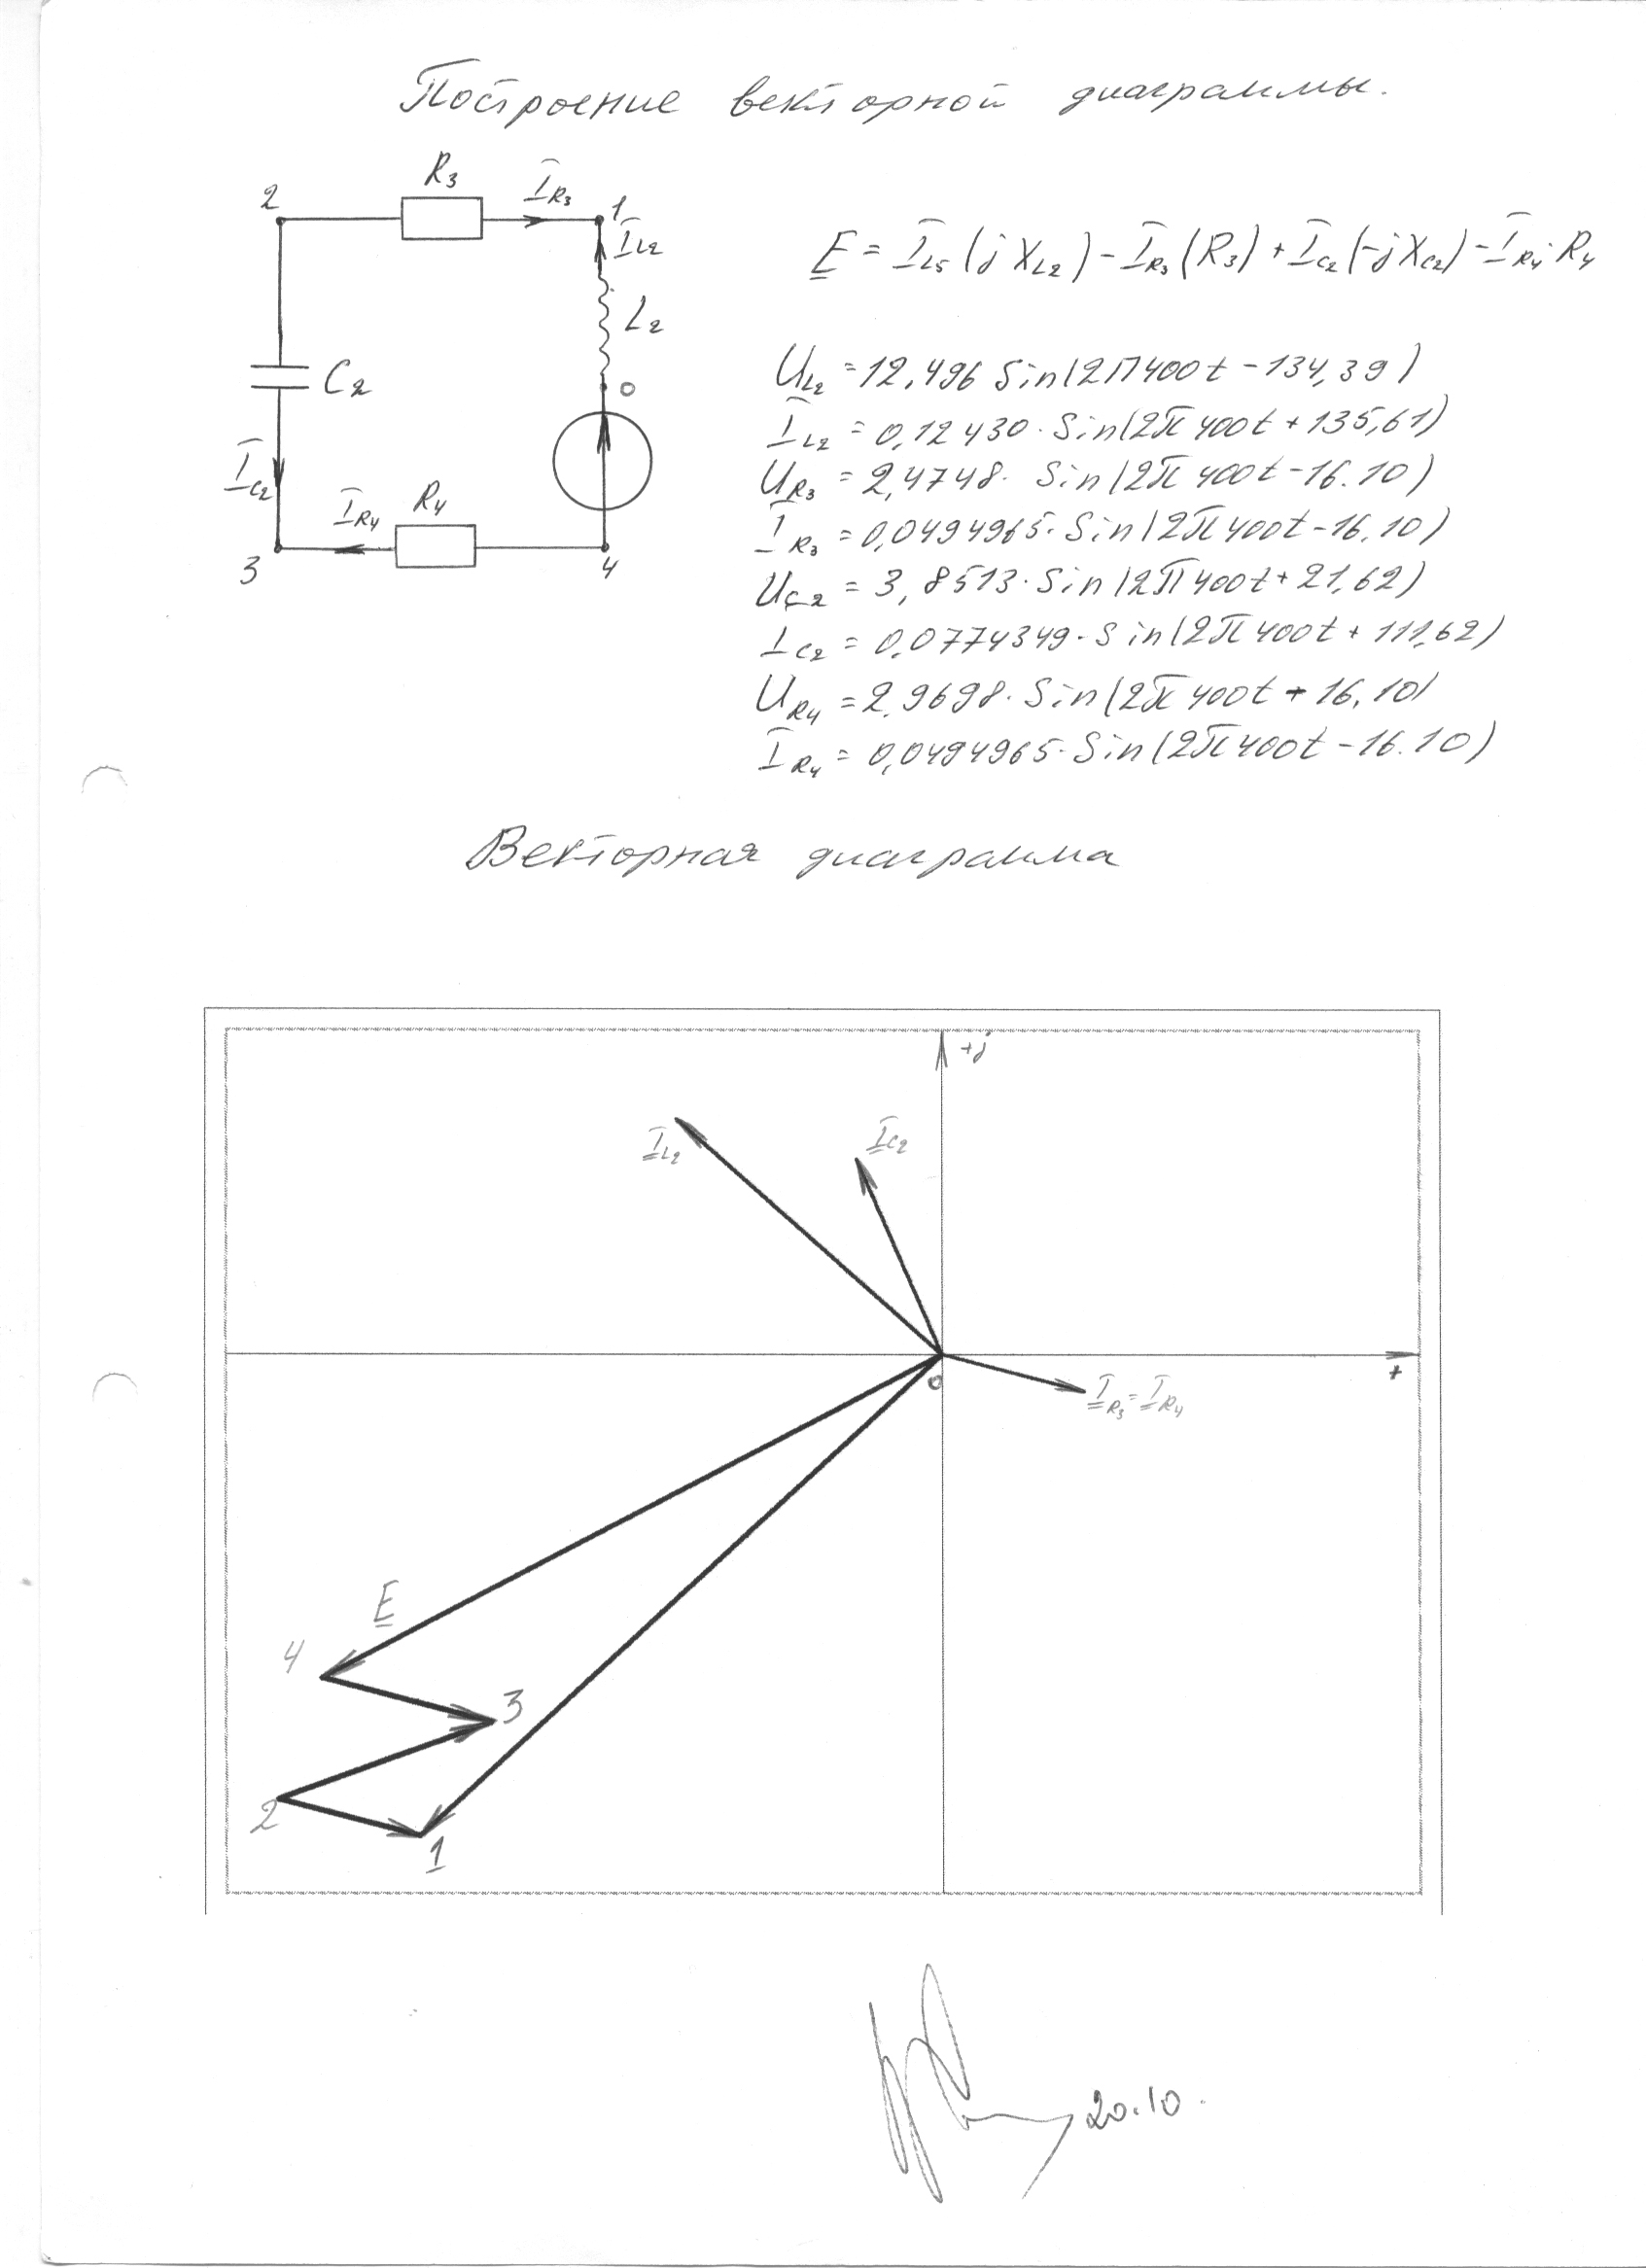 Построение векторной диаграммы.
2
R₃
I̅_R₃
1
I̅_L₂
E = I̅_L₅(jX_L₂) - I̅_R₃(R₃) + I̅_C₂(-jX_C₂) - I̅_R₄·R₄
L₂
C₂
0
I̅_C₂
I̅_R₄
R₄
3
4
U_L₂ = 12,496 Sin(2П400t - 134,39)
I̅_L₂ = 0,12430·Sin(2π400t + 135,61)
U_R₃ = 2,4748· Sin(2π400t - 16.10)
I̅_R₃ = 0,0494965·Sin(2π400t - 16,10)
U_C₂ = 3,8513·Sin(2П400t + 21,62)
I_C₂ = 0,0774349·Sin(2π400t + 111,62)
U_R₄ = 2,9698·Sin(2π400t - 16,10)
I̅_R₄ = 0,0494965·Sin(2π400t - 16.10)
Векторная диаграмма
+j
I̅_L₂
I̅_C₂
0
+
I̅_R₃ = I̅_R₄
E
4
3
2
1
20.10.